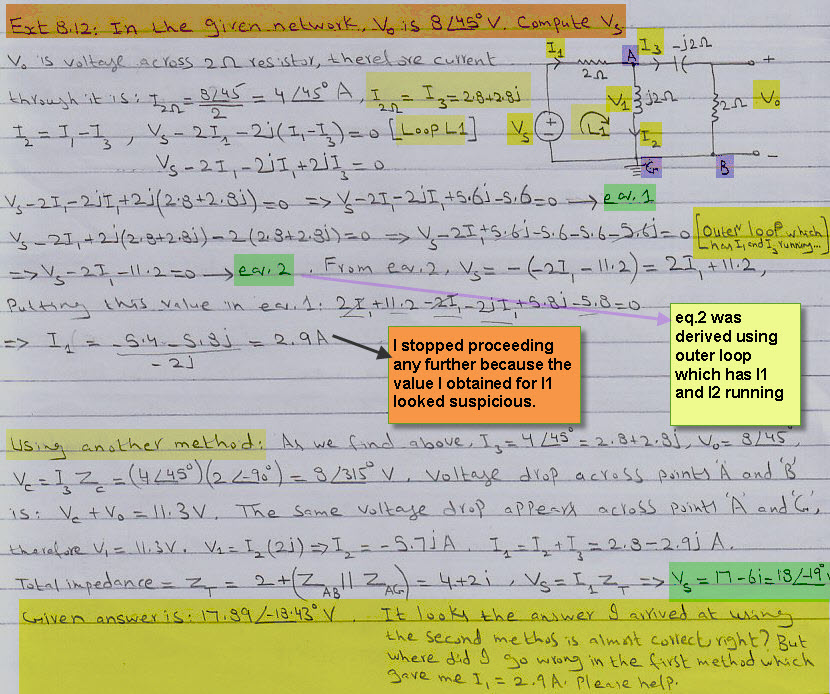 Ext 8.12: In the given network, Vo is 8∠45° V. Compute Vs
Vo is voltage across 2Ω resistor, therefore current
through it is: I2Ω = 8∠45/2 = 4∠45° A, I2Ω = I3 = 2.8+2.8j
I2 = I1 - I3 , Vs - 2I1 - 2j(I1 - I3) = 0 [Loop L1]
Vs - 2I1 - 2jI1 + 2jI3 = 0
I1
2Ω
A
I3
-j2Ω
+
Vs
+
-
L1
V1
j2Ω
I2
2Ω
Vo
G
B
-
Vs - 2I1 - 2jI1 + 2j(2.8+2.8j) = 0 => Vs - 2I1 - 2jI1 + 5.6j - 5.6 = 0 → eq.1
Vs - 2I1 + 2j(2.8+2.8j) - 2(2.8+2.8j) = 0 => Vs - 2I1 + 5.6j - 5.6 - 5.6 - 5.6j = 0 [Outer loop which
has I1 and I3 running...]
=> Vs - 2I1 - 11.2 = 0 → eq.2 . From eq.2, Vs = -(-2I1 - 11.2) = 2I1 + 11.2,
Putting this value in eq.1: 2I1 + 11.2 - 2I1 - 2jI1 + 5.8j - 5.8 = 0
=> I1 = -5.4 - 5.8j / -2j = 2.9A
I stopped proceeding
any further because the
value I obtained for I1
looked suspicious.
eq.2 was
derived using
outer loop
which has I1
and I2 running
Using another method: As we find above, I3 = 4∠45° = 2.8+2.8j, Vo = 8∠45°,
Vc = I3 Zc = (4∠45°)(2∠-90°) = 8∠315° V. Voltage drop across points 'A' and 'B'
is: Vc + Vo = 11.3V. The same voltage drop appears across points 'A' and 'G',
therefore V1 = 11.3V. V1 = I2(2j) => I2 = -5.7j A. I1 = I2 + I3 = 2.8 - 2.9j A.
Total impedance = ZT = 2 + (ZAB || ZAG) = 4+2j , Vs = I1 ZT => Vs = 17-6i = 18∠-19° V
Given answer is: 17.89∠-18.43° V. It looks the answer I arrived at using
the second methos is almost correct, right? But
where did I go wrong in the first method which
gave me I1 = 2.9A. Please help.